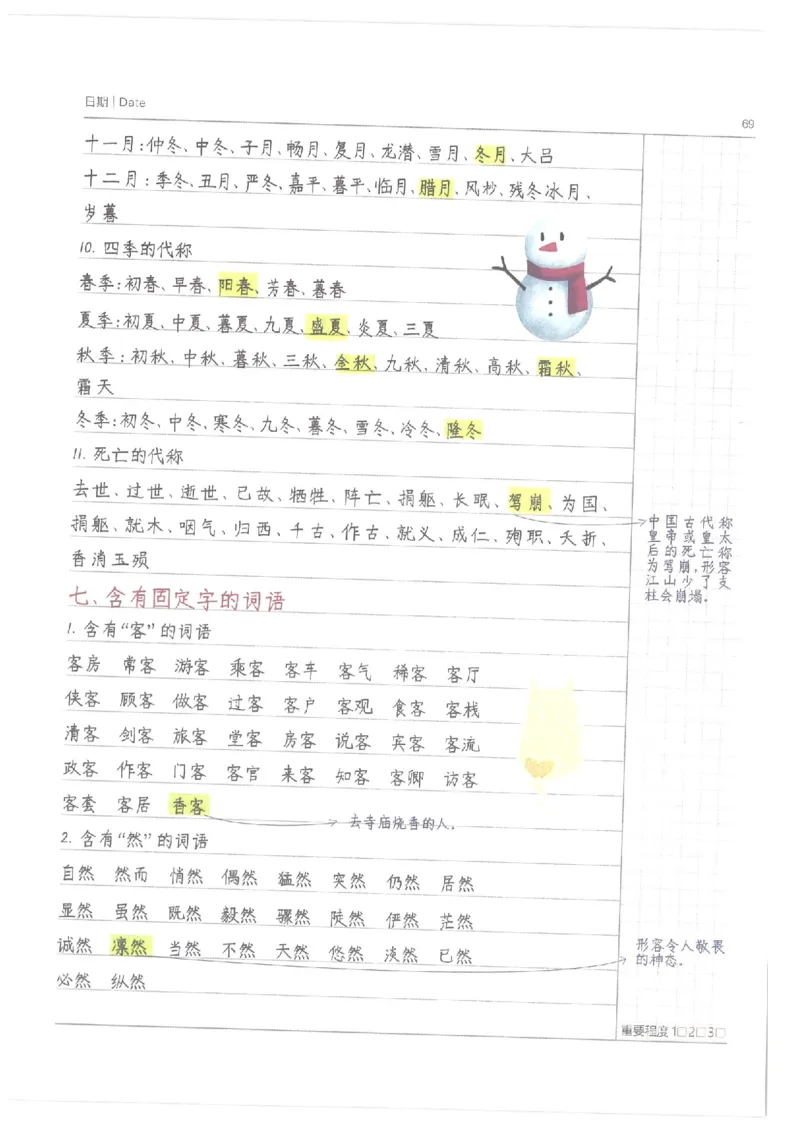 日期 | Date
69
十一月:仲冬、中冬、子月、畅月、复月、龙潜、雪月、冬月、大吕
十二月:季冬、丑月、严冬、嘉平、暮平、临月、腊月、风杪、残冬冰月、
岁暮
10. 四季的代称
春季:初春、早春、阳春、芳春、暮春
夏季:初夏、中夏、暮夏、九夏、盛夏、炎夏、三夏
秋季:初秋、中秋、暮秋、三秋、金秋、九秋、清秋、高秋、霜秋、
霜天
冬季:初冬、中冬、寒冬、九冬、暮冬、雪冬、冷冬、隆冬
11. 死亡的代称
去世、过世、逝世、已故、牺牲、阵亡、捐躯、长眠、驾崩、为国、
捐躯、就木、咽气、归西、千古、作古、就义、成仁、殉职、夭折、
香消玉殒
中国古代称
皇帝或皇太
后的死亡称
为驾崩,形容
江山少了支
柱会崩塌。
七、含有固定字的词语
1. 含有“客”的词语
客房 常客 游客 乘客 客车 客气 稀客 客厅
侠客 顾客 做客 过客 客户 客观 食客 客栈
清客 剑客 旅客 堂客 房客 说客 宾客 客流
政客 作客 门客 客官 来客 知客 客卿 访客
客套 客居 香客
去寺庙烧香的人。
2. 含有“然”的词语
自然 然而 悄然 偶然 猛然 突然 仍然 居然
显然 虽然 既然 毅然 骤然 陡然 俨然 茫然
诚然 凛然 当然 不然 天然 悠然 淡然 已然
形容令人敬畏
的神态。
必然 纵然
重要程度 1□2□3□